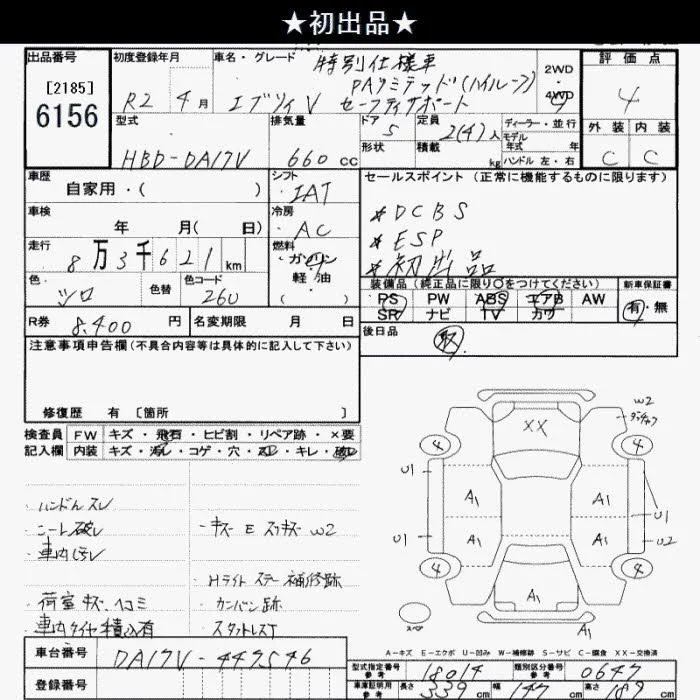 ★初出品★
出品番号
[2185]
6156
初度登録年月
R2 4月
車名・グレード
特別仕様車
PAリミテッド(ハイルーフ)
エブリイV セーフティサポート
2WD
4WD
評価点
4
外装 内装
C C
型式
HBD-DA17V
排気量
660cc
ドア
5
形状
定員
2(4)人
積載
kg
ディーラー・並行
モデル
年式 年
ハンドル 左・右
車歴
自家用・( )
シフト
IAT
車検
年 月( 日)
冷房
AC
走行
8万3千621km
燃料
ガソリン
軽油
( ・ )
色
シロ
色替
色コード
26U
R券
8,400円
名変期限 月 日
セールスポイント(正常に機能するものに限ります)
*DCBS
*ESP
*初出品
装備品(純正品に限り○をつけてください)
PS PW ABS エアB AW
SR ナビ TV カワ
新車保証書
有・無
後日品
取
注意事項申告欄(不具合内容等は具体的に記入して下さい)
修復歴 有 [箇所 ]
検査員
記入欄
FW キズ・飛石・ヒビ割・リペア跡・×要
内装 キズ・汚レ・コゲ・穴・スレ・キレ・破レ
・ハンドルスレ
・シート破レ
・車内汚レ
・荷室キズ、ヘコミ
・車内タイヤ積込有
・キズ E スリキズ W2
・Hライトステー補修跡
・カンバン跡
・スタットレスT
W2
XX
4
4
U1
A1
A1
U1
U1
A1
A1
U2
4
4
A1
A1
スペア
A-キズ E-エクボ U-凹み W-補修跡 S-サビ C-腐食 XX-交換済
車台番号
DA17V-447546
登録番号
型式指定番号
参考
18014
類別区分番号
参考
0647
車庫証明用
参考
長さ 339cm 幅 147cm 高さ 189cm